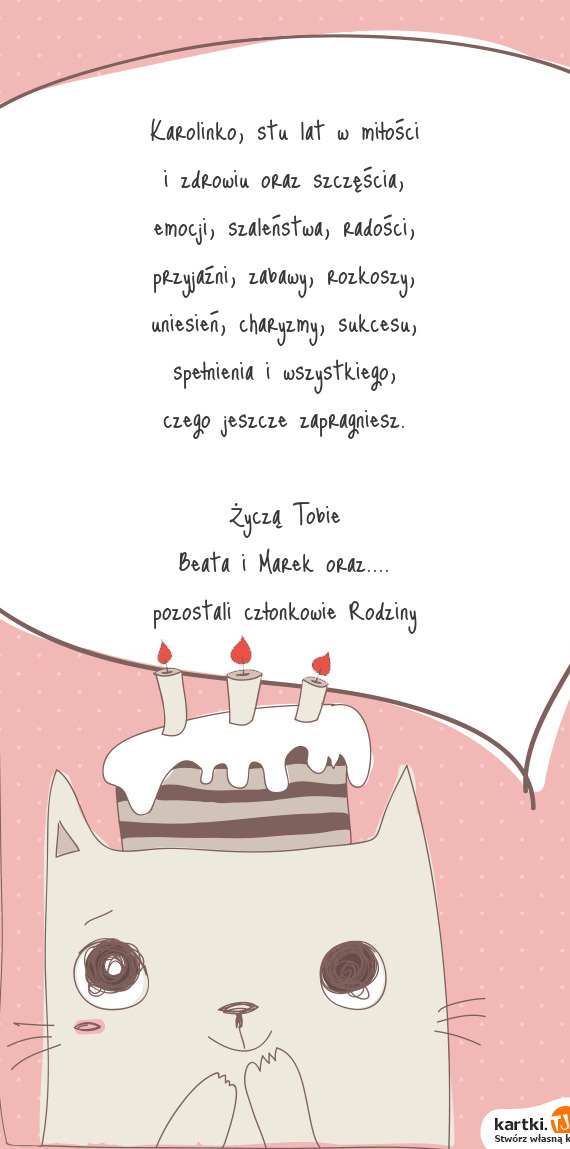 Karolinko, stu lat w miłości
i zdrowiu oraz szczęścia,
emocji, szaleństwa, radości,
przyjaźni, zabawy, rozkoszy,
uniesień, charyzmy, sukcesu,
spełnienia i wszystkiego,
czego jeszcze zapragniesz.
Życzą Tobie
Beata i Marek oraz....
pozostali członkowie Rodziny
kartki.TJ
Stwórz własną k